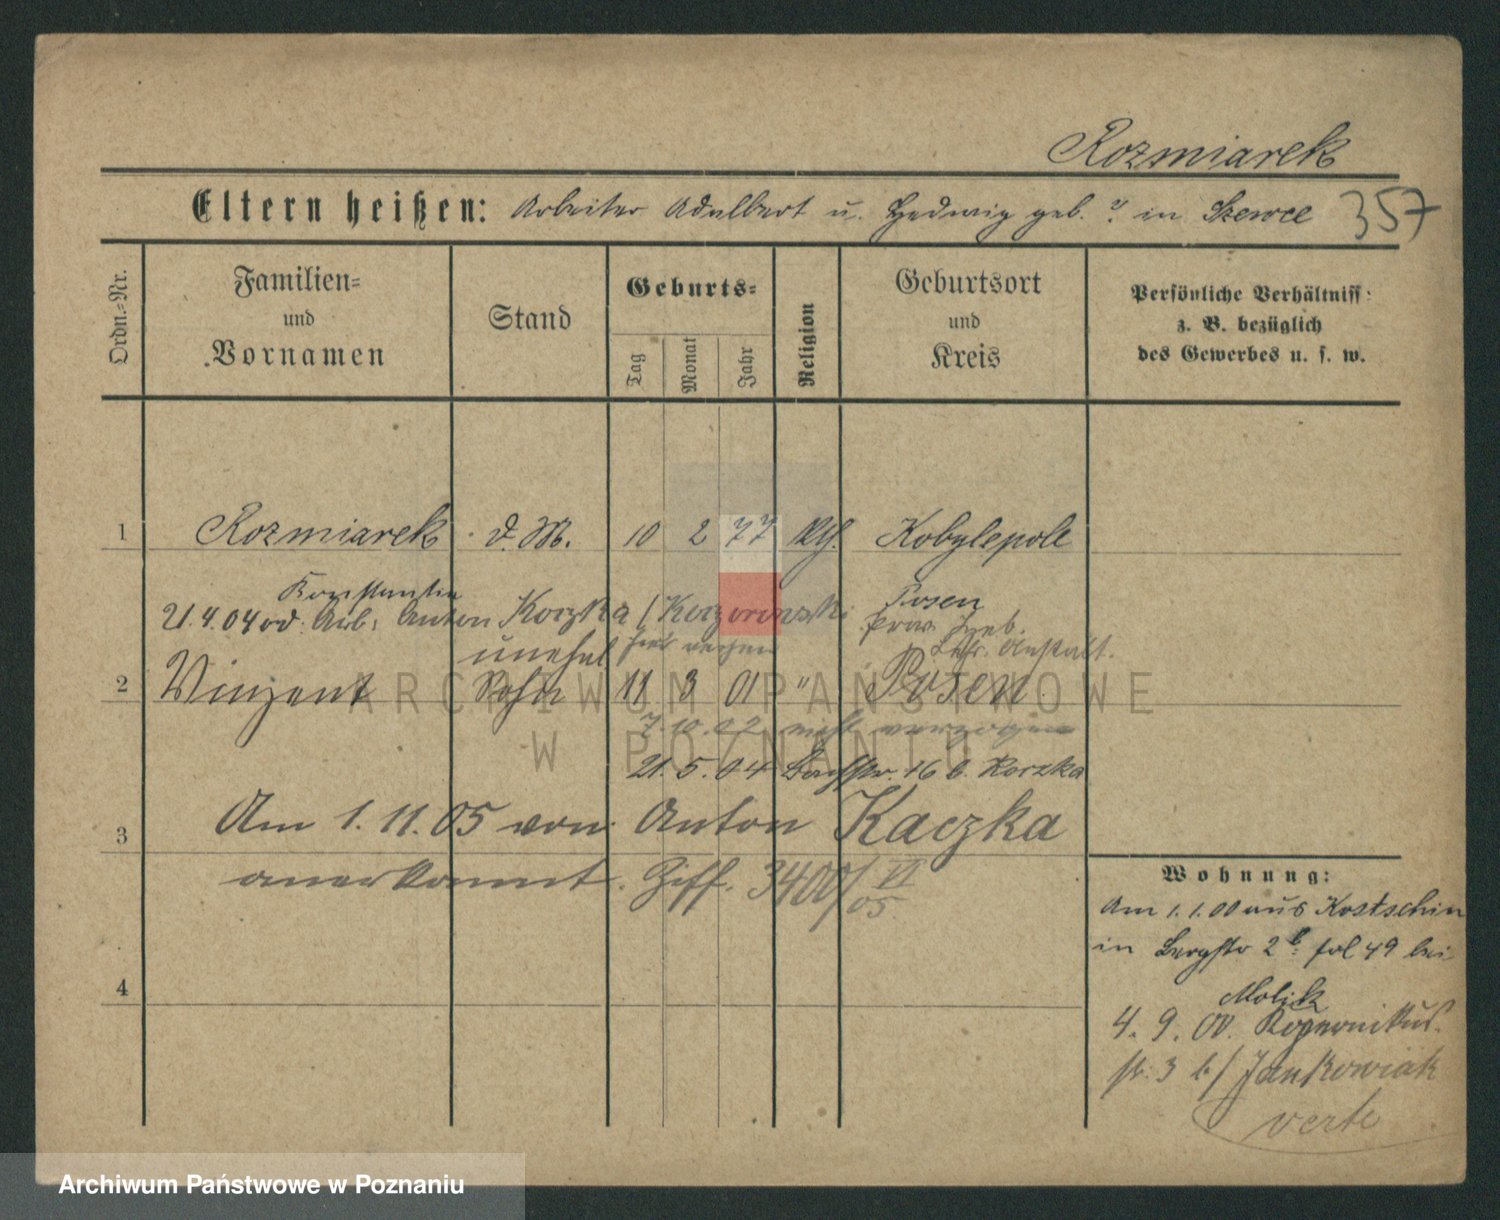 Rozmiarek
Eltern heißen: Arbeiter Adalbert u. Hedwig geb. ? in Szewce 357
Ordn.-Nr.
Familien-
und
Vornamen
Stand
Geburts-
Tag
Monat
Jahr
Religion
Geburtsort
und
Kreis
Persönliche Verhältniss:
z. B. bezüglich
des Gewerbes u. s. w.
1 Rozmiarek d. M. 10 2 77 kth. Kobylepole
Konstantin
21.4.04 Arb: Anton Koczka / Posen
Prov. Heb.
unehel. Lehr. Anstalt.
2 Vinzent Sohn 11 3 01 " Posen.
7.10.02 nicht verzogen
21.5.04 16 b. Koczka
3 Am 1.11.05 von Anton Kaczka
anerkannt. Ziff. 3400/VI 05
4
Wohnung:
Am 1.1.00 aus Kostschin
in Bergstr 2 b. fol 49 bei
Molik
4.9.00. Kopernikus-
str. 3 b/ Jankowiak
verte
ARCHIWUM PAŃSTWOWE
W POZNANIU
Archiwum Państwowe w Poznaniu